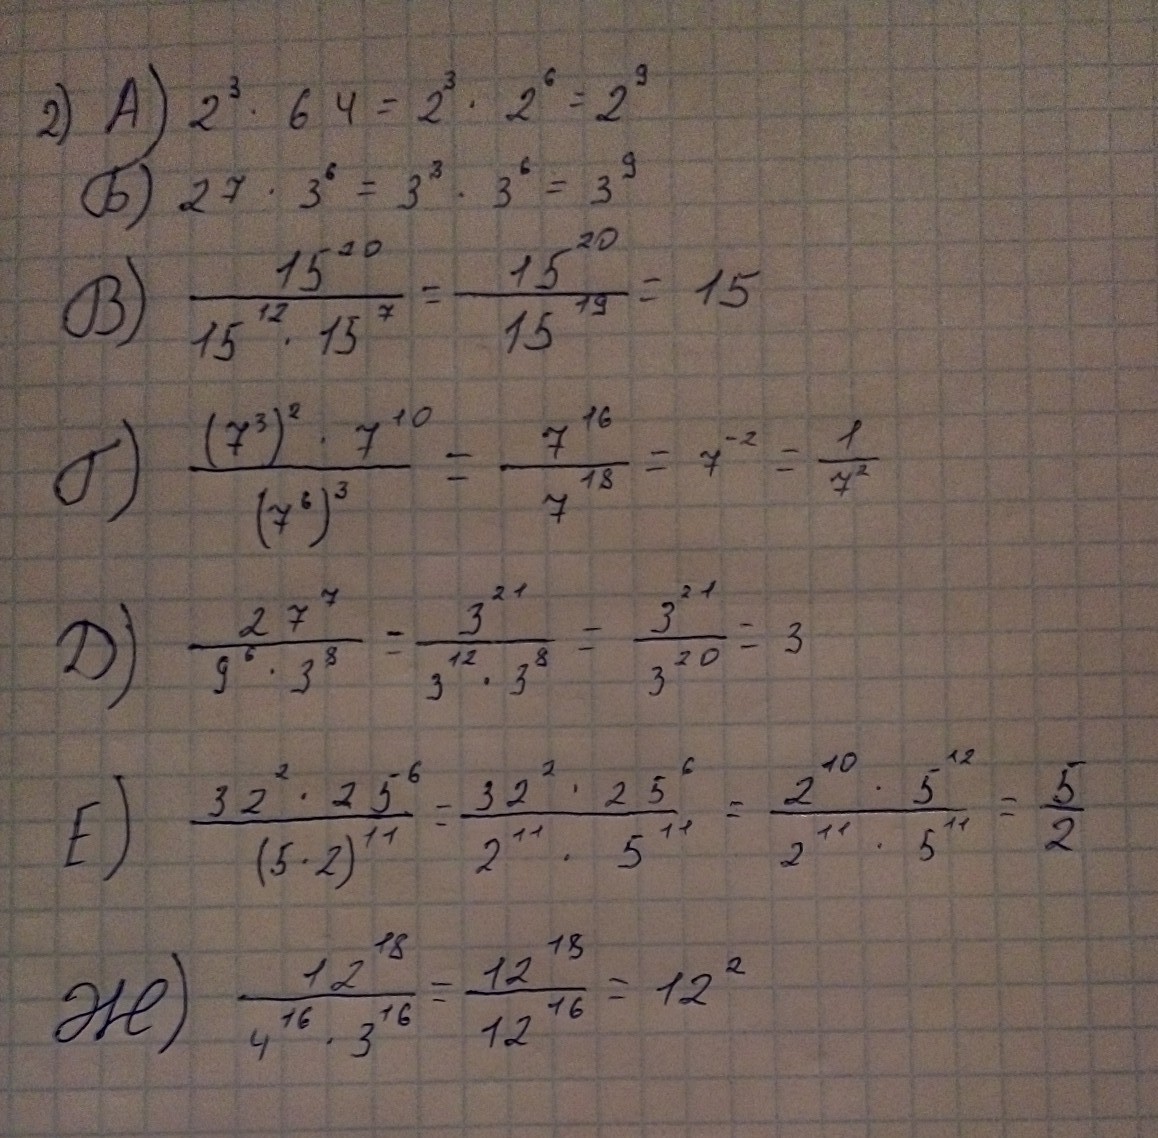 2) А) 2³ · 64 = 2³ · 2⁶ = 2⁹
Б) 27 · 3⁶ = 3³ · 3⁶ = 3⁹
В) 15²⁰ / (15¹² · 15⁷) = 15²⁰ / 15¹⁹ = 15
Г) ((7³)² · 7¹⁰) / (7⁶)³ = 7¹⁶ / 7¹⁸ = 7⁻² = 1 / 7²
Д) 27⁷ / (9⁶ · 3⁸) = 3²¹ / (3¹² · 3⁸) = 3²¹ / 3²⁰ = 3
Е) (32² · 25⁶) / (5 · 2)¹¹ = (32² · 25⁶) / (2¹¹ · 5¹¹) = (2¹⁰ · 5¹²) / (2¹¹ · 5¹¹) = 5 / 2
Ж) 12¹⁸ / (4¹⁶ · 3¹⁶) = 12¹⁸ / 12¹⁶ = 12²